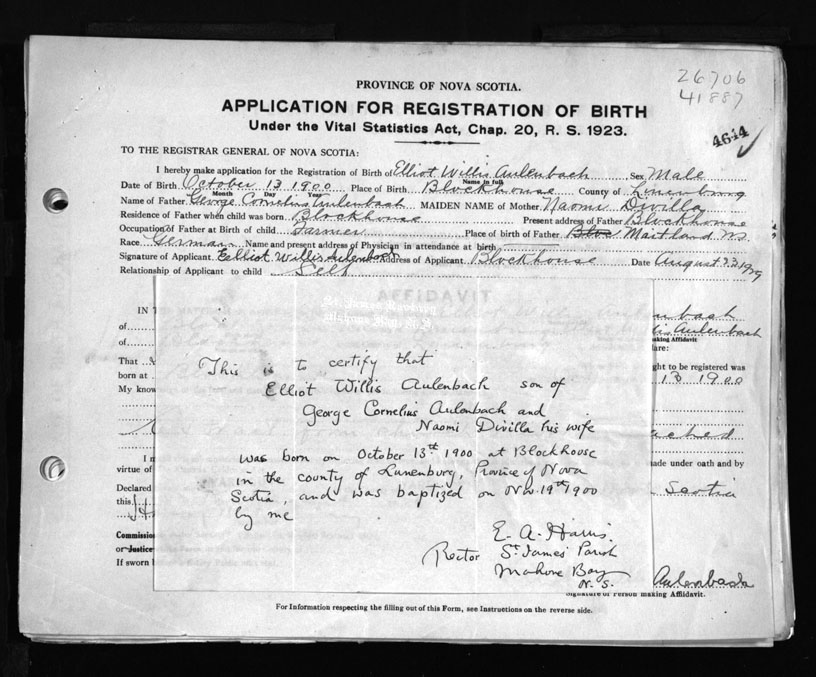 26706
41887
PROVINCE OF NOVA SCOTIA.
APPLICATION FOR REGISTRATION OF BIRTH
Under the Vital Statistics Act, Chap. 20, R. S. 1923.
4644
TO THE REGISTRAR GENERAL OF NOVA SCOTIA:
I hereby make application for the Registration of Birth of Elliot Willis Aulenbach Sex Male
Name in full
Date of Birth October 13 1900 Place of Birth Blockhouse County of Lunenburg
Month Day Year
Name of Father George Cornelius Aulenbach MAIDEN NAME of Mother Naomi Divilla
Residence of Father when child was born Blockhouse Present address of Father Blockhouse
Occupation of Father at Birth of child Farmer Place of birth of Father Bloc Maitland NS
Race German Name and present address of Physician in attendance at birth
Signature of Applicant Elliot Willis Aulenbach Address of Applicant Blockhouse Date August 23 1929
Relationship of Applicant to child Self
AFFIDAVIT
IN nbach
of lis Aulenbach
making Affidavit
of lare:
That ght to be registered was
born at 13 1900
My know
ached
I m made under oath and by
virtue of
Declared Scotia
this
Commissio
or Justice
If sworn
Aulenbach
Signature of Person making Affidavit.
This is to certify that
Elliot Willis Aulenbach son of
George Cornelius Aulenbach and
Naomi Divilla his wife
was born on October 13th 1900 at Blockhouse
in the county of Lunenburg, Province of Nova
Scotia, and was baptized on Nov 19th 1900
by me
E. A. Harris.
Rector St James' Parish
Mahone Bay
N. S.
For Information respecting the filling out of this Form, see Instructions on the reverse side.